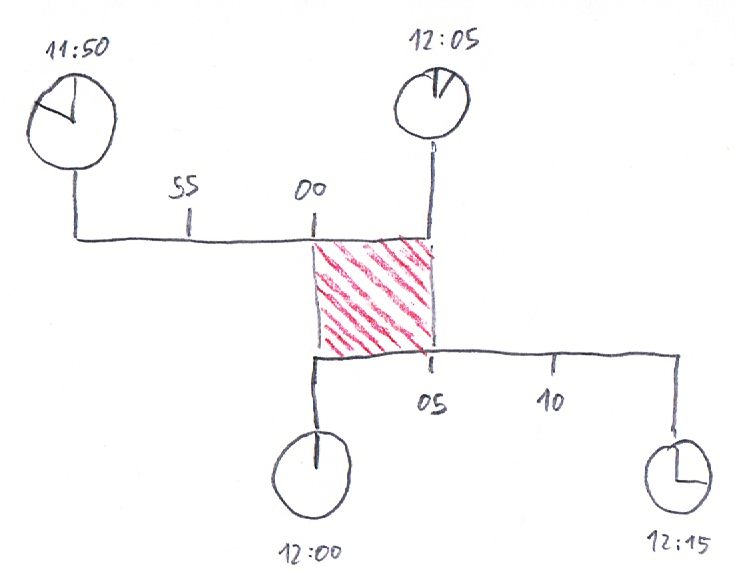 11:50
12:05
55
00
05
10
12:00
12:15